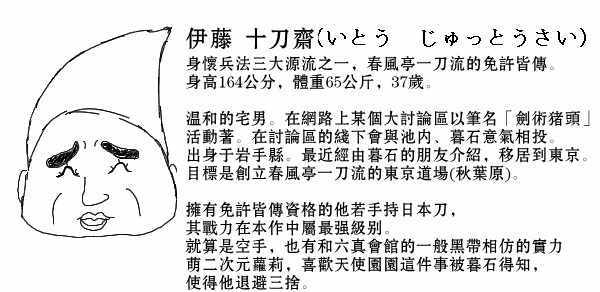 伊藤 十刀齋(いとう じゅっとうさい)
身懷兵法三大源流之一，春風亭一刀流的免許皆傳。
身高164公分，體重65公斤，37歲。
温和的宅男。在網路上某個大討論區以筆名「劍術猪頭」
活動著。在討論區的綫下會與池内、暮石意氣相投。
出身于岩手縣。最近經由暮石的朋友介紹，移居到東京。
目標是創立春風亭一刀流的東京道場(秋葉原)。
擁有免許皆傳資格的他若手持日本刀，
其戰力在本作中屬最强級別。
就算是空手，也有和六真會館的一般黑帶相仿的實力
萌二次元蘿莉，喜歡天使園園這件事被暮石得知，
使得他退避三捨。